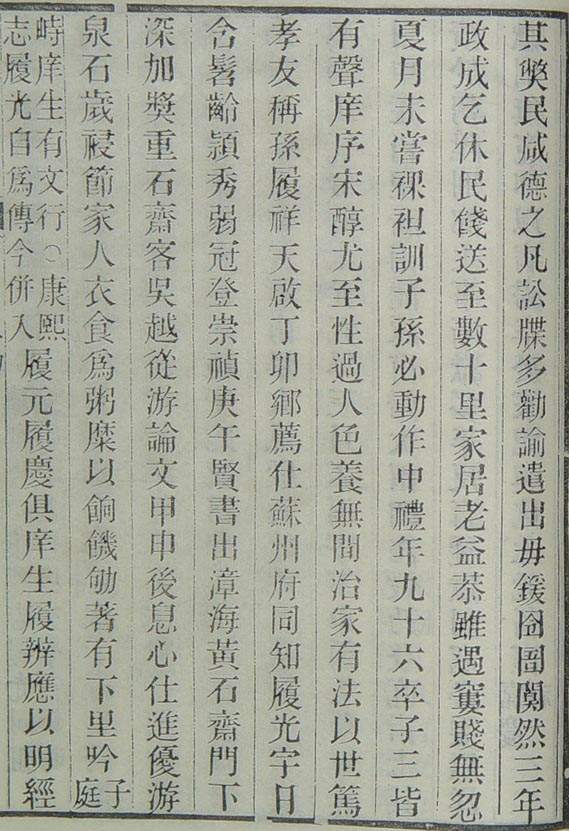 其獘民咸德之凡訟牒多勸諭遣出毋鍰囹圄闃然三年
政成乞休民餞送至數十里家居老益恭雖遇窶賤無忽
夏月未嘗裸袒訓子孫必動作中禮年九十六卒子三皆
有聲庠序宋醇尤至性過人色養無間治家有法以世篤
孝友稱孫履祥天啟丁卯鄉薦仕蘇州府同知履光字日
含髫齡頴秀弱冠登崇禎庚午賢書出漳海黃石齋門下
深加獎重石齋客吳越從游論文甲申後息心仕進優游
泉石歲祲節家人衣食爲粥糜以餉饑劬著有下里吟子庭
峙庠生有文行○康熙志履光自爲傳今併入履元履慶俱庠生履辨應以明經